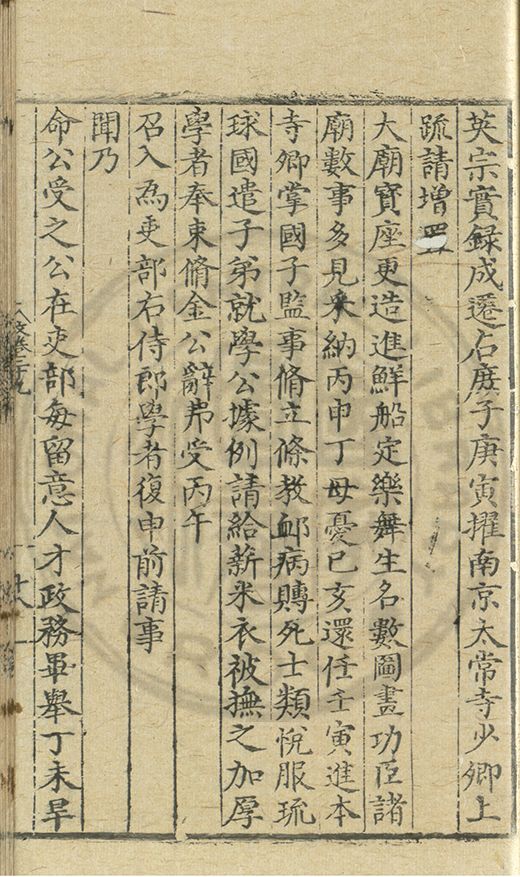 英宗實録成遷右庻子庚寅擢南京太常寺少卿上
䟽請增置
大廟寳座更造進鮮船定樂舞生名數圖畫功臣諸
廟數事多見采納丙申丁母憂已亥還任壬寅進本
寺卿掌國子監事脩立條教䘏病賻死士類悦服琉
球國遣子弟就學公據例請給薪米衣被撫之加厚
學者奉束脩金公辭弗受丙午
召入爲吏部右侍郎學者復申前請事
聞乃
命公受之公在吏部每留意人才政務畢舉丁未旱